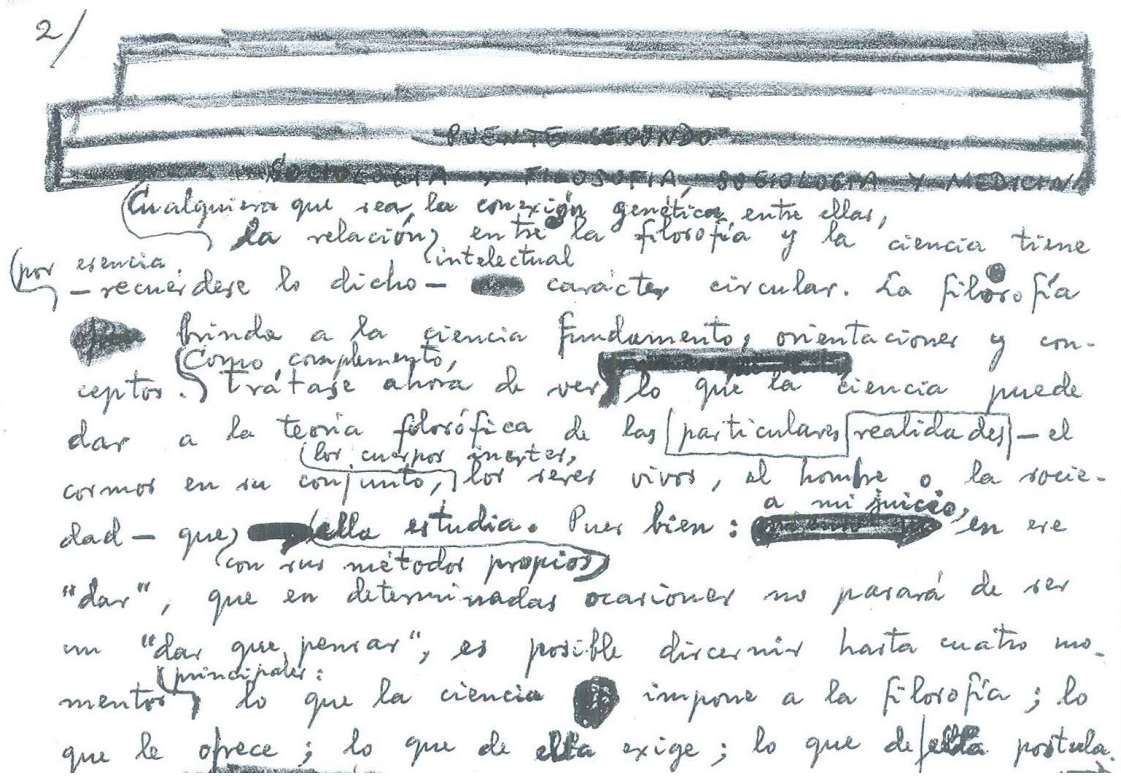 2/
PUENTE SEGUNDO
SOCIOLOGIA Y FILOSOFIA, SOCIOLOGIA Y MEDICINA
Cualquiera que sea la conexión genética entre ellas,
la relación entre la filosofía y la ciencia tiene
por esencia intelectual
— recuérdese lo dicho — carácter circular. La filosofía
brinda a la ciencia fundamento, orientaciones y con-
Como complemento,
ceptos. trátase ahora de ver lo que la ciencia puede
dar a la teoría filosófica de las particulares realidades — el
los cuerpos inertes,
cosmos en su conjunto, los seres vivos, el hombre o la socie-
a mi juicio,
dad — que ella estudia. Pues bien: en ese
con sus métodos propios
"dar", que en determinadas ocasiones no pasará de ser
un "dar que pensar", es posible discernir hasta cuatro mo-
principales:
mentos lo que la ciencia impone a la filosofía; lo
que le ofrece; lo que de ella exige; lo que de ella postula.